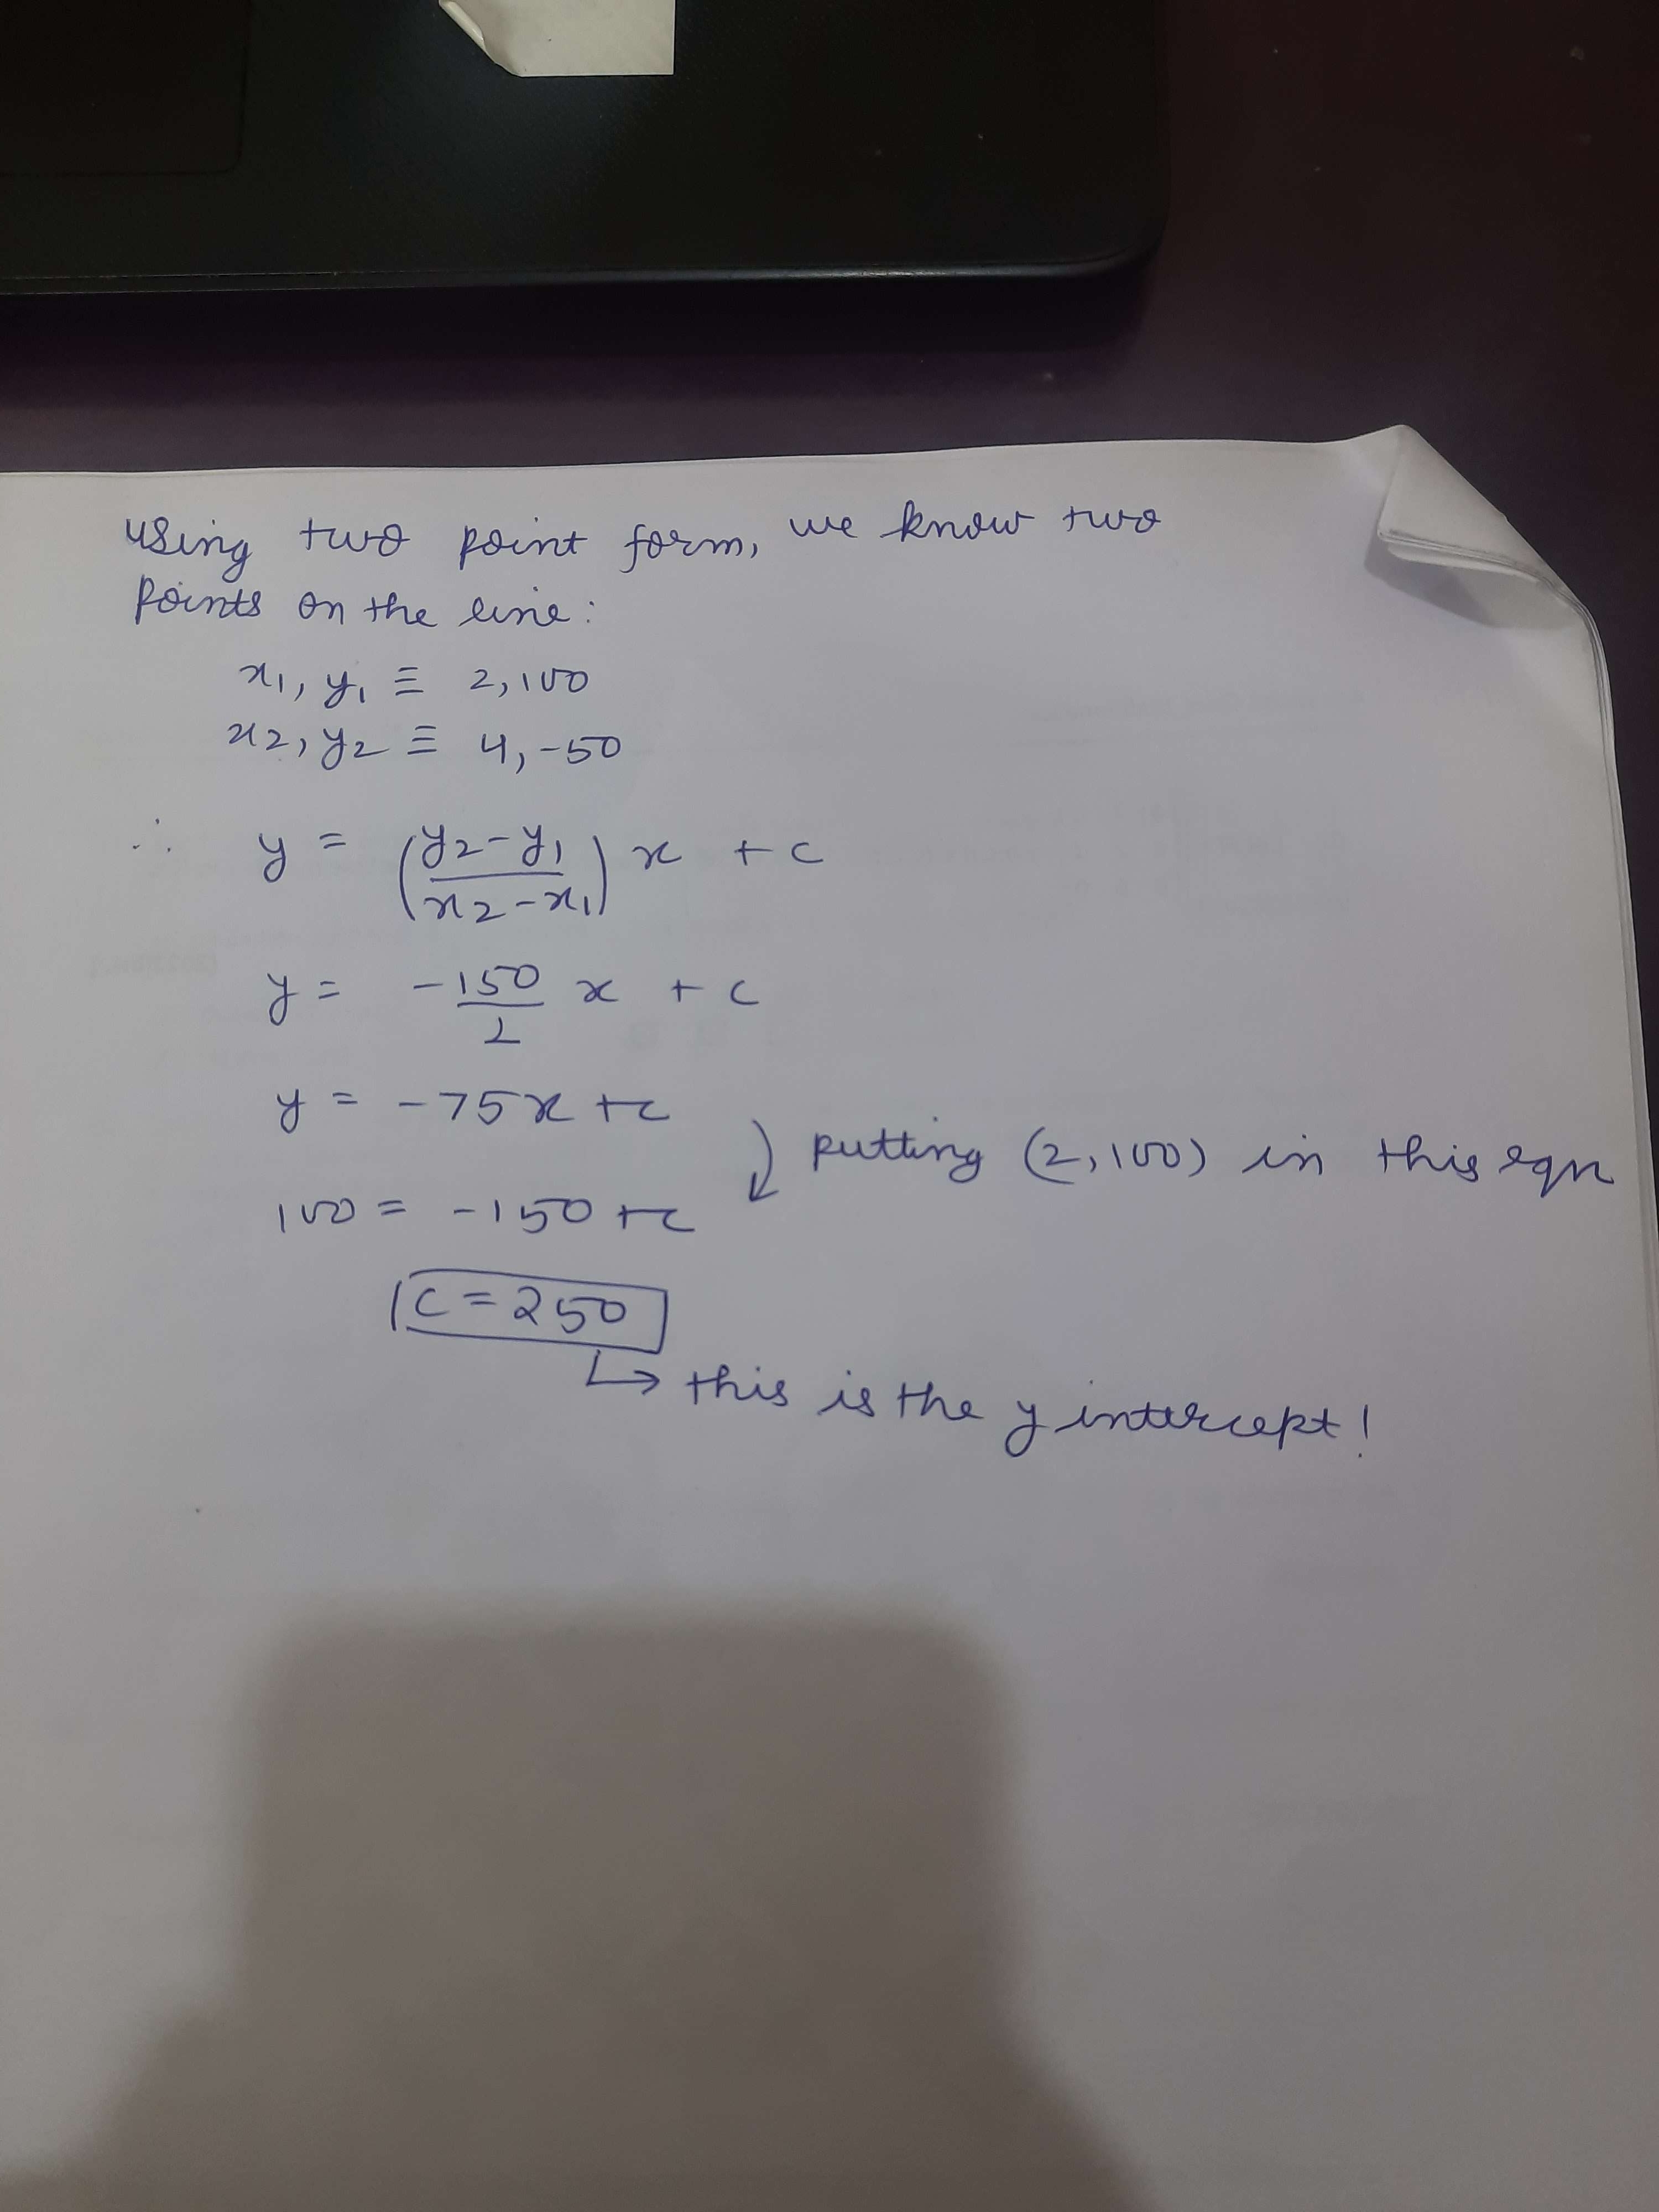 using two point form, we know two
points on the line:
x1, y1 ≡ 2, 100
x2, y2 ≡ 4, -50
∴ y = (y2 - y1 / x2 - x1) x + c
y = -150/2 x + c
y = -75x + c
putting (2, 100) in this eqn
100 = -150 + c
c = 250
↳ this is the y intercept!